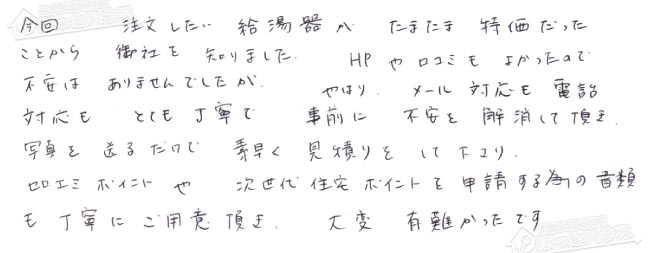 今回 注文したい 給湯器が たまたま 特価だった
ことから 御社を 知りました. HPや口コミも よかったので
不安は ありませんでしたが. やはり. メール対応も 電話
対応も とても丁寧で 事前に 不安を 解消して頂き.
写真を 送るだけで 素早く 見積りを して下さり.
ゼロエミポイントや 次世代住宅ポイントを申請する為の書類
も 丁寧に ご用意頂き. 大変 有難かったです